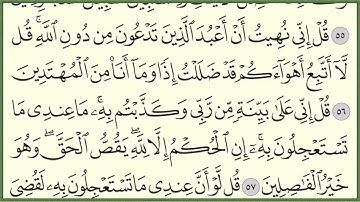 ٥٥ قُلْ إِنِّي نُهِيتُ أَنْ أَعْبُدَ الَّذِينَ تَدْعُونَ مِن دُونِ اللَّهِ ۚ قُل
لَّا أَتَّبِعُ أَهْوَاءَكُمْ ۙ قَدْ ضَلَلْتُ إِذًا وَمَا أَنَا۠ مِنَ الْمُهْتَدِينَ
٥٦ قُلْ إِنِّي عَلَىٰ بَيِّنَةٍ مِّن رَّبِّي وَكَذَّبْتُم بِهِ ۚ مَا عِندِي مَا
تَسْتَعْجِلُونَ بِهِ ۚ إِنِ الْحُكْمُ إِلَّا لِلَّهِ ۖ يَقُصُّ الْحَقَّ ۖ وَهُوَ
خَيْرُ الْفَاصِلِينَ ٥٧ قُل لَّوْ أَنَّ عِندِي مَا تَسْتَعْجِلُونَ بِهِ لَقُضِيَ